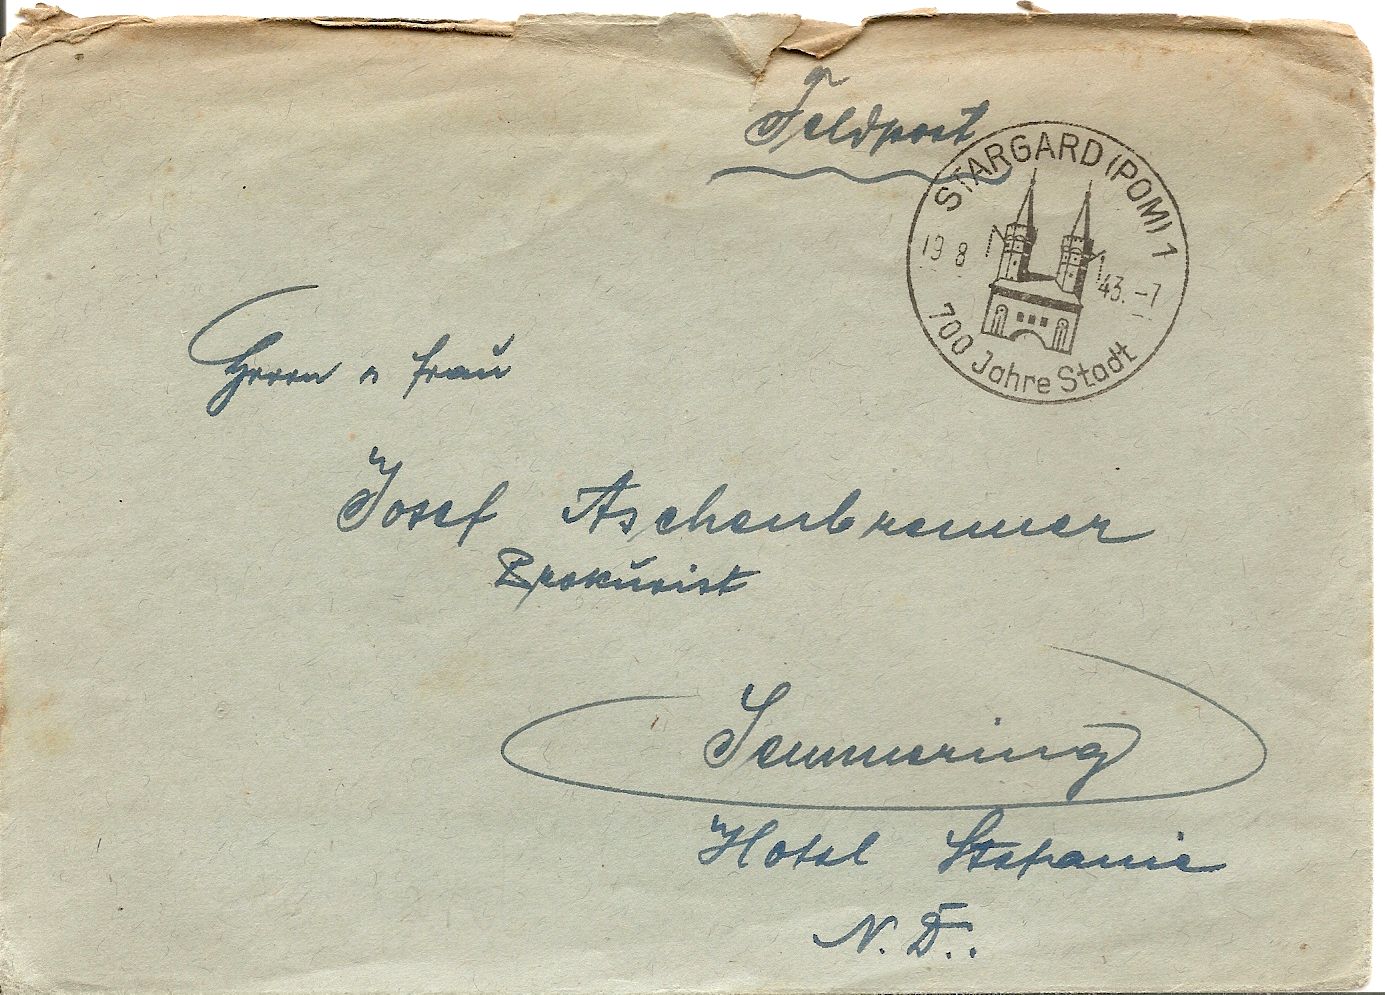 Feldpost
STARGARD (POM) 1
19 8 43. -7
700 Jahre Stadt
Herrn u frau
Josef Aschenbrenner
Prokurist
Semmering
Hotel Stefanie
N. D..